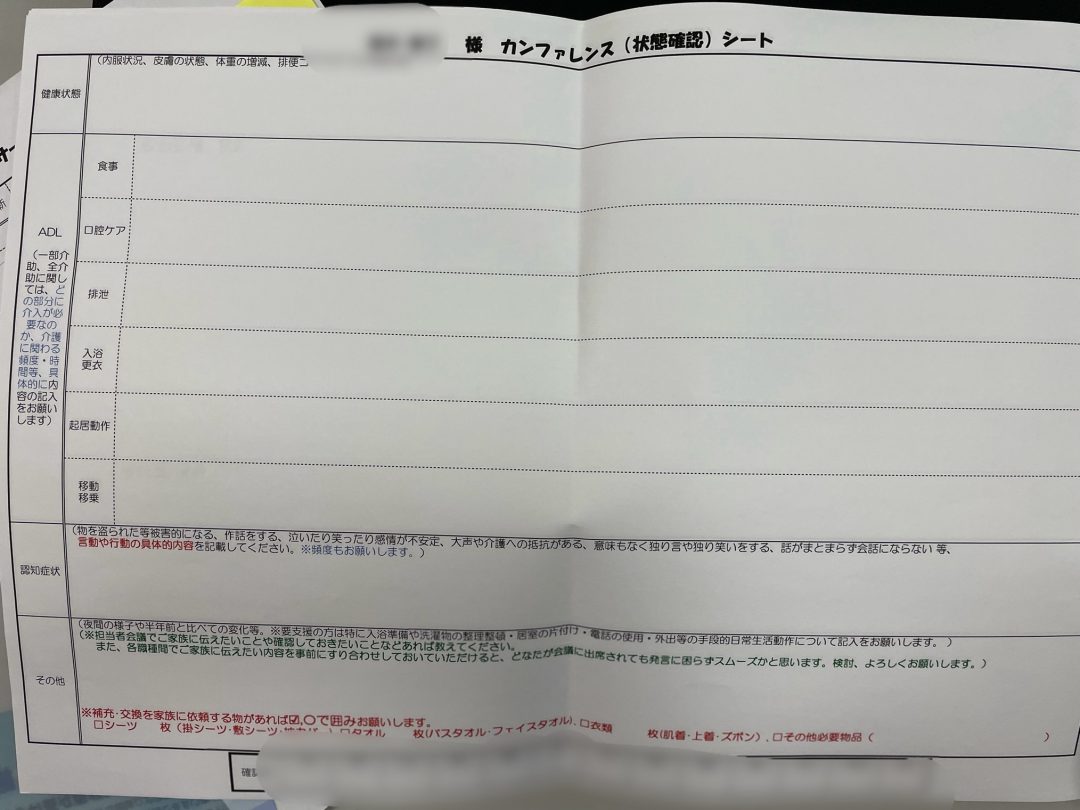 様 カンファレンス（状態確認）シート
健康状態
（内服状況、皮膚の状態、体重の増減、排便コ
ADL
（一部介
助、全介
助に関し
ては、ど
の部分に
介入が必
要なの
か、介護
に関わる
頻度・時
間等、具
体的に内
容の記入
をお願い
します）
食事
口腔ケア
排泄
入浴
更衣
起居動作
移動
移乗
認知症状
（物を盗られた等被害的になる、作話をする、泣いたり笑ったり感情が不安定、大声や介護への抵抗がある、意味もなく独り言や独り笑いをする、話がまとまらず会話にならない 等、
言動や行動の具体的内容を記載してください。※頻度もお願いします。）
その他
（夜間の様子や半年前と比べての変化等。※要支援の方は特に入浴準備や洗濯物の整理整頓・居室の片付け・電話の使用・外出等の手段的日常生活動作について記入をお願いします。）
（※担当者会議でご家族に伝えたいことや確認しておきたいことなどあれば教えてください。
また、各職種間でご家族に伝えたい内容を事前にすり合わせしておいていただけると、どなたが会議に出席されても発言に困らずスムーズかと思います。検討、よろしくお願いします。）
※補充・交換を家族に依頼する物があれば☑,〇で囲みお願いします。
□シーツ 枚（掛シーツ・敷シーツ・枕カバー）□タオル 枚(バスタオル・フェイスタオル)、□衣類 枚(肌着・上着・ズボン）、□その他必要物品（ ）
確認